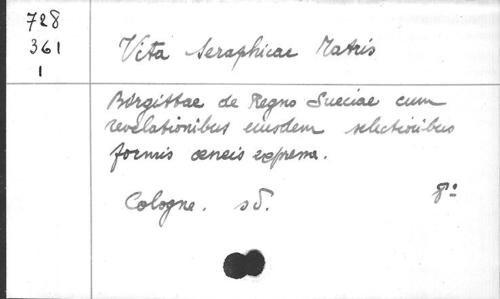 728
361
1
Vita Seraphicae Matris
Birgittae de Regno Sueciae cum
revelationibus eiusdem selectioribus
formis aeneis expressa.
Cologne. sd. 8°